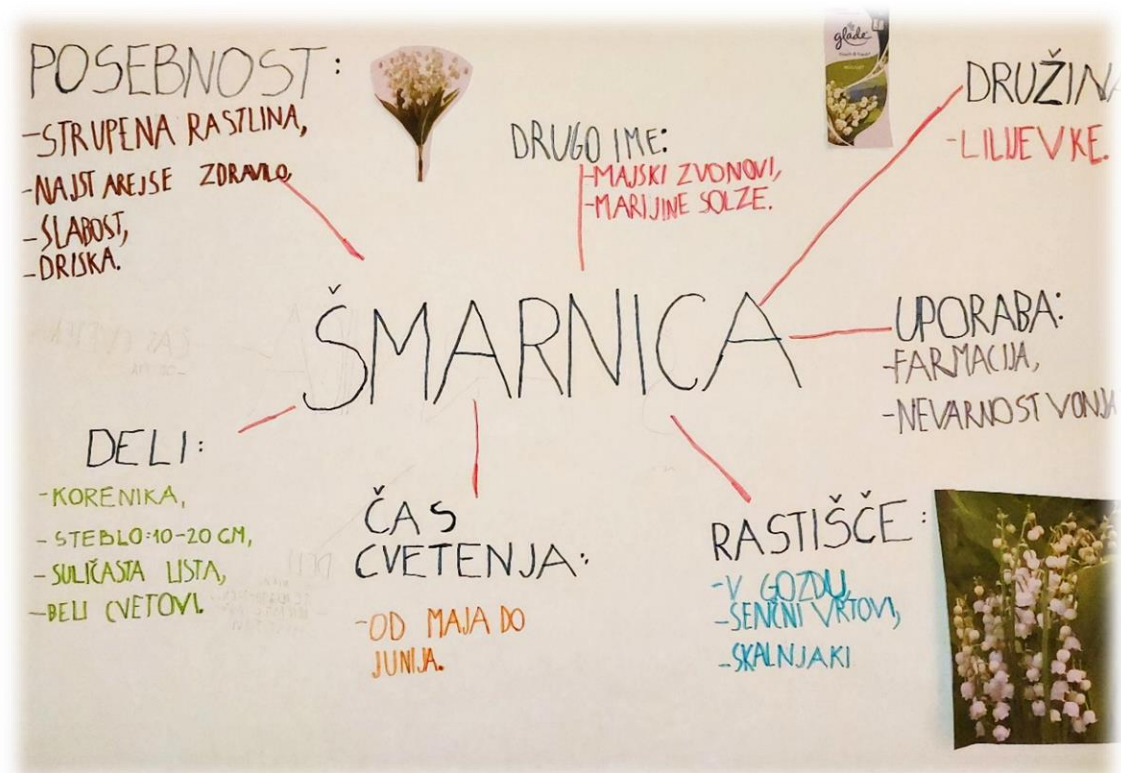 POSEBNOST:
-STRUPENA RASTLINA,
-NAJSTAREJSE ZDRAVILO,
-SLABOST,
-DRISKA.
DRUGO IME:
-MAJSKI ZVONOVI,
-MARIJINE SOLZE.
glade
DRUŽINA
-LILIJEVKE.
ŠMARNICA
UPORABA:
-FARMACIJA,
-NEVARNOST VONJA
DELI:
-KORENIKA,
-STEBLO:10-20 CM,
-SULIČASTA LISTA,
-BELI CVETOVI.
ČAS
CVETENJA:
-OD MAJA DO
JUNIJA.
RASTIŠČE:
-V GOZDU,
-SENČNI VRTOVI,
-SKALNJAKI